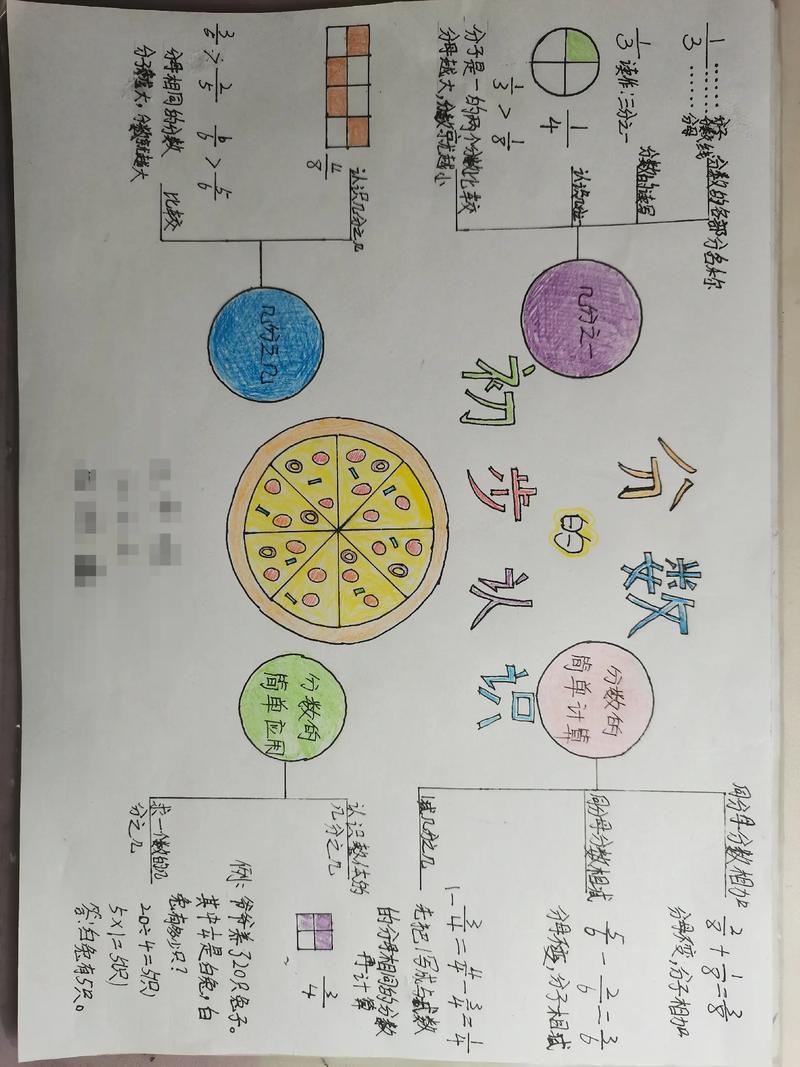 分数
的
初步认识
几分之一
分数的各部分名称
1/3 ……分子
……分数线
……分母
分数的读写
1/3 读作:三分之一
认识几分之一
1/4
1/3 > 1/8
分子是一的两个分数比较
分母越大,分数就越小
几分之几
认识几分之几
4/8
比较
6/6 > 5/6
分母相同的分数
分子越大,分数就越大
分数的
简单计算
同分母分数相加
2/8 + 1/8 = 3/8
分母不变,分子相加
同分母分数相减
5/6 - 2/6 = 3/6
分母不变,分子相减
1减几分之几
1 - 3/4 = 4/4 - 3/4 = 1/4
先把1写成与减数
的分母相同的分数
再计算
分数的
简单应用
认识整体的
几分之几
3/4
求一个数的几
分之几
例:爷爷养了20只兔子。
其中1/4是白兔,白
兔有多少只?
20÷4=5(只)
5×1=5(只)
答:白兔有5只。